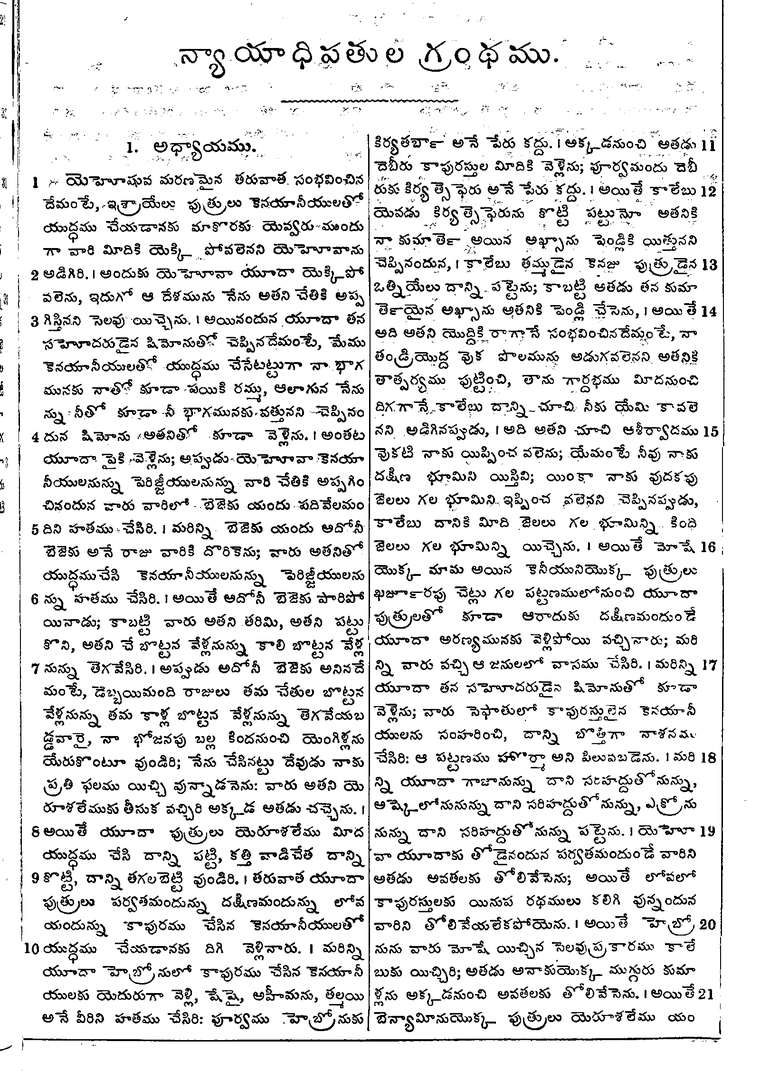 న్యాయాధిపతుల గ్రంథము.
1. అధ్యాయము.
1 యెహోషువ మరణమైన తరువాత సంభవించిన
దేమంటే, ఇశ్రాయేలు పుత్రులు కెనయానీయులతో
యుద్ధము చేయడానకు మాకొరకు యెవ్వరు ముందు
గా వారి మీదికి యెక్కి పోవలెనని యెహోవాను
2 అడిగిరి. । అందుకు యెహోవా యూదా యెక్కిపో
వలెను, ఇదుగో ఆ దేశమును నేను అతని చేతికి అప్ప
3 గిస్తినని సెలవు యిచ్చెను. । అయినందున యూదా తన
సహోదరుడైన షిమోనుతో చెప్పినదేమంటే, మేము
కెనయానీయులతో యుద్ధము చేసేటట్టుగా నా భాగ
మునకు నాతో కూడా పయికి రమ్ము, ఆలాగున నేను
న్ను నీతో కూడా నీ భాగమునకు వత్తునని చెప్పినం
4 దున షిమోను అతనితో కూడా వెళ్లెను. । అంతట
యూదా పైకి వెళ్లెను; అప్పుడు యెహోవా కెనయా
నీయులనున్ను పెరిజ్జీయులనున్ను వారి చేతికి అప్పగిం
చినందున వారు వారిలో బెజెకు యందు పదివేలమం
5 దిని హతము చేసిరి. । మరిన్ని బెజెకు యందు అదోనీ
బెజెకు అనే రాజు వారికి దొరికెను; వారు అతనితో
యుద్ధముచేసి కెనయానీయులనున్ను పెరిజ్జీయులను
6 న్ను హతము చేసిరి. । అయితే అదోనీ బెజెకు పారిపో
యినాడు; కాబట్టి వారు అతని తరిమి, అతని పట్టు
కొని, అతని చే బొట్టన వేళ్లనున్ను కాలి బొట్టన వేళ్ల
7 నున్ను తెగవేసిరి. । అప్పుడు అదోనీ బెజెకు అనినదే
మంటే, డెబ్బయిమంది రాజులు తమ చేతుల బొట్టన
వేళ్లనున్ను తమ కాళ్ల బొట్టన వేళ్లనున్ను తెగవేయబ
డ్డవారై, నా భోజనపు బల్ల కిందనుంచి యెంగిళ్లను
యేరుకొంటూ వుండిరి; నేను చేసినట్టు దేవుడు నాకు
ప్రతి ఫలము యిచ్చి వున్నాడనెను: వారు అతని యె
రూశలేముకు తీసుక వచ్చిరి అక్కడ అతడు చచ్చెను. ।
8 అయితే యూదా పుత్రులు యెరూశలేము మీద
యుద్ధము చేసి దాన్ని పట్టి, కత్తి వాడిచేత దాన్ని
9 కొట్టి, దాన్ని తగలబెట్టి వుండిరి. । తరువాత యూదా
పుత్రులు పర్వతమందున్ను దక్షిణమందున్ను లోవ
యందున్ను కాపురము చేసిన కెనయానీయులతో
10 యుద్ధము చేయడానకు దిగి వెళ్లినారు. । మరిన్ని
యూదా హెబ్రోనులో కాపురము చేసిన కెనయానీ
యులకు యెదురుగా వెళ్లి, షేషై, అహీమను, తల్మయి
అనే వీరిని హతము చేసిరి: పూర్వము హెబ్రోనుకు
కిర్యతబా౯ అనే పేరు కద్దు. । అక్కడనుంచి అతడు 11
దెబీరు కాపురస్తుల మీదికి వెళ్లెను; పూర్వమందు దెబీ
రుకు కిర్య త్సెఫెరు అనే పేరు కద్దు. । అయితే కాలేబు 12
యెవడు కిర్య త్సెఫెరును కొట్టి పట్టునో అతనికి
నా కుమాతె౯ అయిన అఖ్సాను పెండ్లికి యిత్తునని
చెప్పినందున, । కాలేబు తమ్ముడైన కెనజు పుత్రుడైన 13
ఒత్నియేలు దాన్ని పట్టెను; కాబట్టి అతడు తన కుమా
తె౯యైన అఖ్సాను అతనికి పెండ్లి చేసెను, । అయితే 14
అది అతని యొద్దికి రాగానే సంభవించినదేమంటే, నా
తండ్రియొద్ద వుక పొలమున్ను అడుగవలెనని అతనికి
తాత్పర్యము పుట్టించి, తాను గార్దభము మీదనుంచి
దిగగానే కాలేబు దాన్ని చూచి నీకు యేమి కావలె
నని అడిగినప్పుడు, । అది అతని చూచి ఆశీర్వాదము 15
వుకటి నాకు యిప్పించ వలెను; యేమంటే నీవు నాకు
దక్షిణ భూమిని యిస్తివి; యింకా నాకు వుదకపు
జెలలు గల భూమిని ఇప్పించ వలెనని చెప్పినప్పుడు,
కాలేబు దానికి మీది జెలలు గల భూమిన్ని కింది
జెలలు గల భూమిన్ని యిచ్చెను. । అయితే మోషే 16
యొక్క మామ అయిన కెనీయునియొక్క పుత్రులు
ఖజూ౯రపు చెట్లు గల పట్టణములోనుంచి యూదా
పుత్రులతో కూడా ఆరాదుకు దక్షిణమందుండే
యూదా అరణ్యమునకు వెళ్లిపోయి వచ్చినారు; మరి
న్ని వారు వచ్చి ఆ జనులలో వాసము చేసిరి. । మరిన్ని 17
యూదా తన సహోదరుడైన షిమోనుతో కూడా
వెళ్లెను; వారు సెఫాతులో కాపురస్తులైన కెనయానీ
యులను సంహరించి, దాన్ని బొత్తిగా నాశనము
చేసిరి: ఆ పట్టణము హోర్మా అని పిలువబడెను. । మరి 18
న్ని యూదా గాజానున్ను దాని సరిహద్దుతోనున్ను,
ఆష్కెలోనునున్ను దాని సరిహద్దుతోనున్ను, ఎక్రోను
నున్ను దాని సరిహద్దుతోనున్ను పట్టెను. । యెహో 19
వా యూదాకు తోడైనందున పర్వతమందుండే వారిని
అతడు అవతలకు తోలివేసెను; అయితే లోవలో
కాపురస్తులకు యినుప రథములు కలిగి వున్నందున
వారిని తోలివేయలేకపోయెను. । అయితే హెబ్రో 20
నును వారు మోషే యిచ్చిన సెలవు ప్రకారము కాలే
బుకు యిచ్చిరి; అతడు అనాకుయొక్క ముగ్గురు కుమా
ళ్లను అక్కడనుంచి అవతలకు తోలివేసెను. । అయితే 21
బెన్యామీనుయొక్క పుత్రులు యెరూశలేము యం